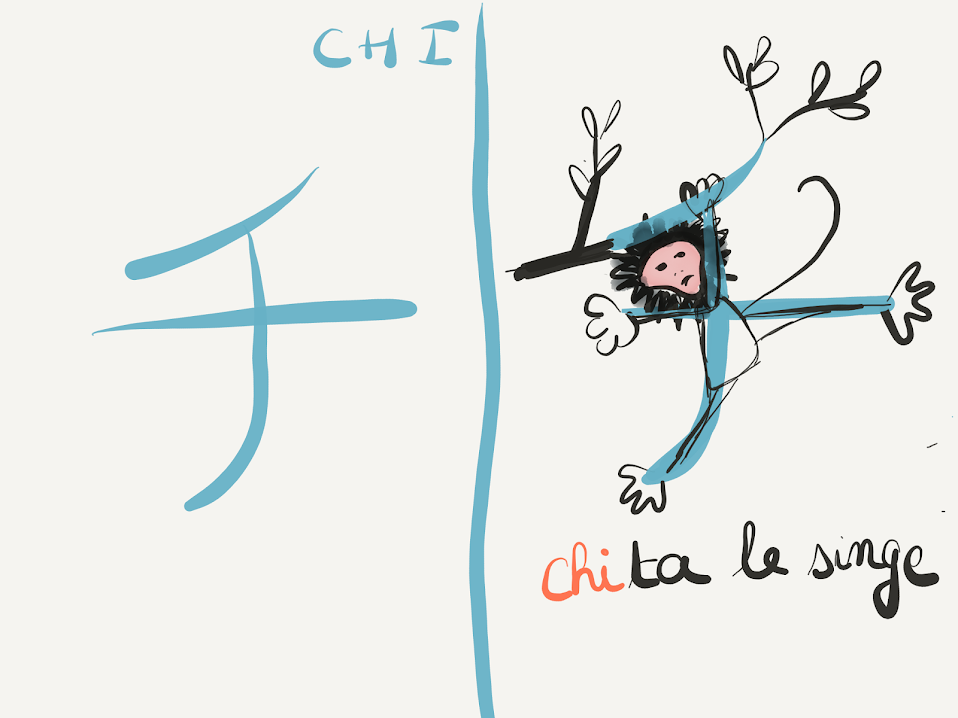 CHI
チ
chita le singe